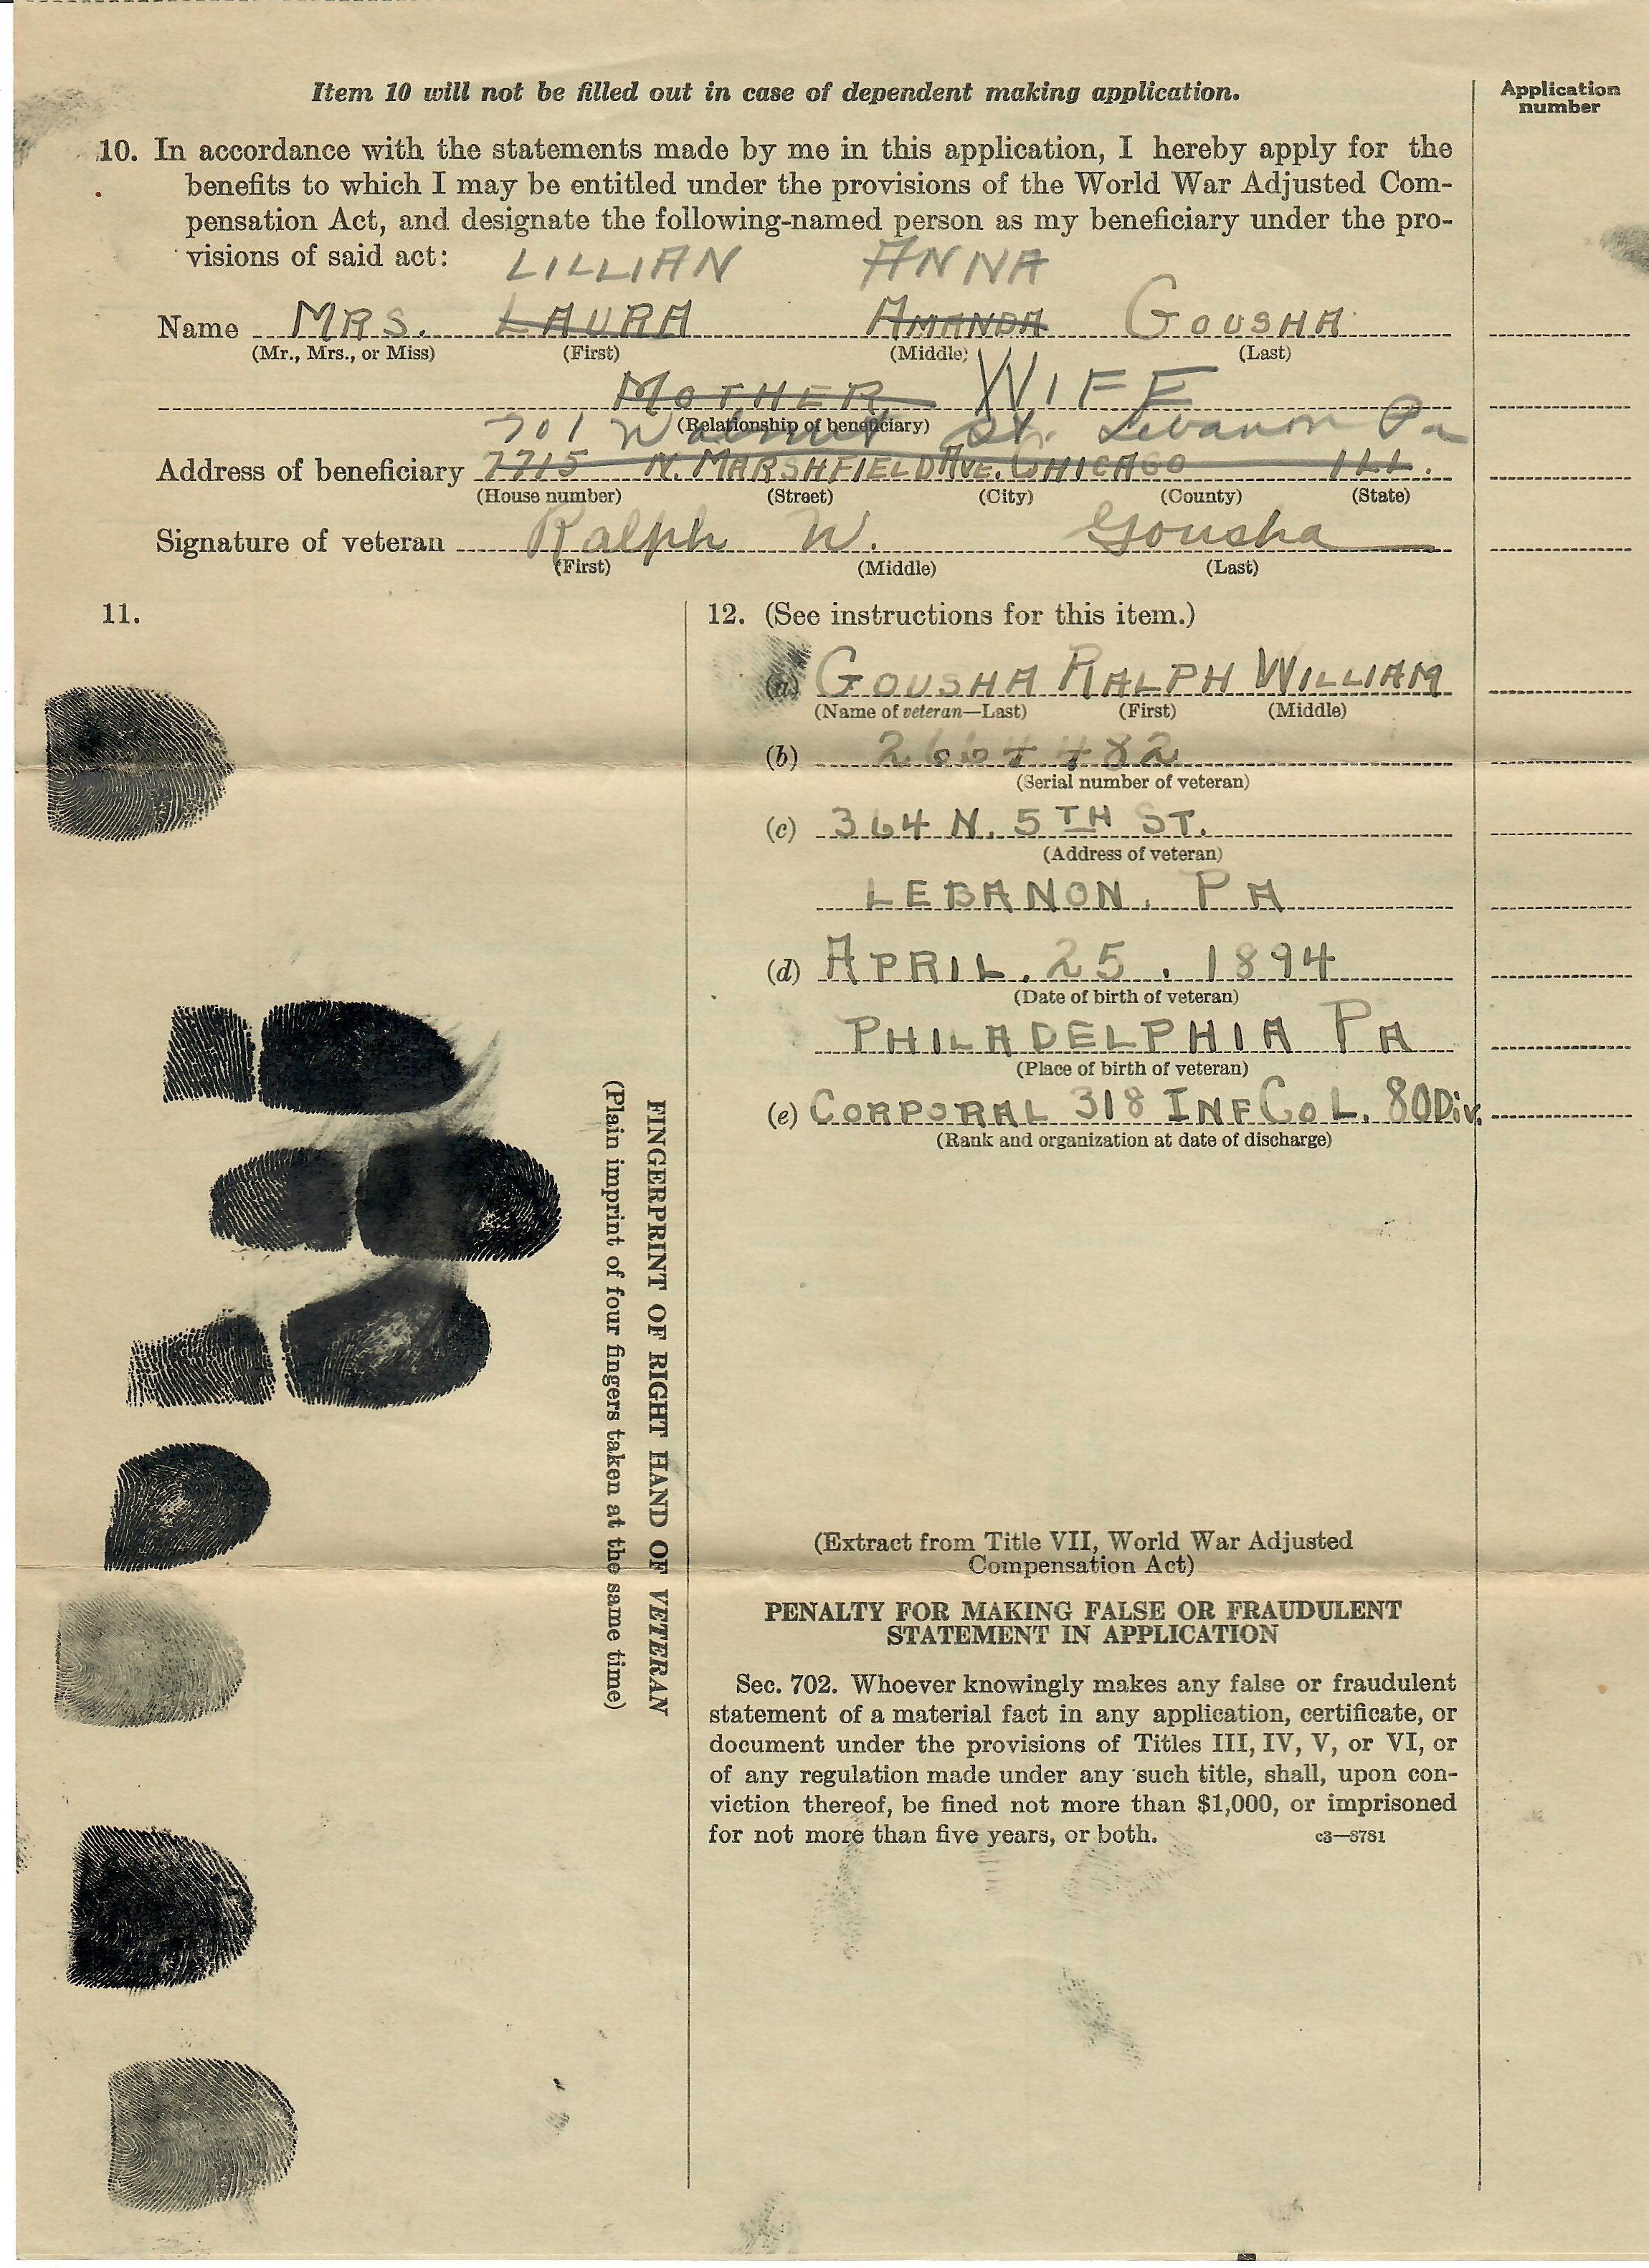 Item 10 will not be filled out in case of dependent making application.
Application
number
10. In accordance with the statements made by me in this application, I hereby apply for the
benefits to which I may be entitled under the provisions of the World War Adjusted Com-
pensation Act, and designate the following-named person as my beneficiary under the pro-
visions of said act:
LILLIAN ANNA
Name MRS. LAURA AMANDA GOUSHA
(Mr., Mrs., or Miss) (First) (Middle) (Last)
MOTHER WIFE
(Relationship of beneficiary)
701 Walnut St. Lebanon Pa
Address of beneficiary 7715 N. MARSHFIELD AVE. CHICAGO ILL.
(House number) (Street) (City) (County) (State)
Signature of veteran Ralph W. Gousha
(First) (Middle) (Last)
11.
FINGERPRINT OF RIGHT HAND OF VETERAN
(Plain imprint of four fingers taken at the same time)
12. (See instructions for this item.)
(a) GOUSHA RALPH WILLIAM
(Name of veteran—Last) (First) (Middle)
(b) 2664482
(Serial number of veteran)
(c) 364 N. 5TH ST.
(Address of veteran)
LEBANON. PA
(d) APRIL. 25. 1894
(Date of birth of veteran)
PHILADELPHIA PA
(Place of birth of veteran)
(e) CORPORAL 318 INF CO L. 80 Div.
(Rank and organization at date of discharge)
(Extract from Title VII, World War Adjusted
Compensation Act)
PENALTY FOR MAKING FALSE OR FRAUDULENT
STATEMENT IN APPLICATION
Sec. 702. Whoever knowingly makes any false or fraudulent
statement of a material fact in any application, certificate, or
document under the provisions of Titles III, IV, V, or VI, or
of any regulation made under any such title, shall, upon con-
viction thereof, be fined not more than $1,000, or imprisoned
for not more than five years, or both.
c3—8781